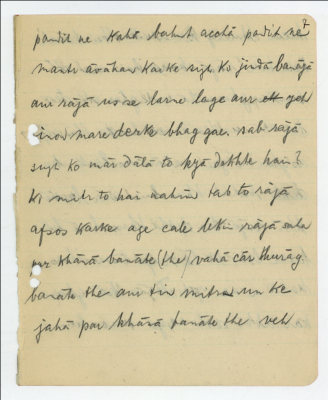 7
pandit ne kahā bahut acchā padit ne
mantr āvāhan karke sigh ko jindā banāyā
aur rājā us se larne lage aur yeh
tino mare derke bhag gae, sab rājā
sigh ko mār dālā to kyā dekhte hain?
ki mitr to hai nahīn tab to rājā
afsos karke age cale lekin rājā
par khānā banāte (the) vahā cār
banāte the aur tin mitra un ke
jahā par khānā banāte the veh